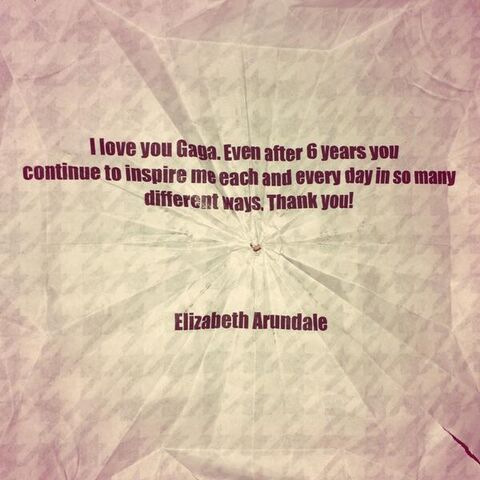 I love you Gaga. Even after 6 years you
continue to inspire me each and every day in so many
different ways. Thank you!
Elizabeth Arundale